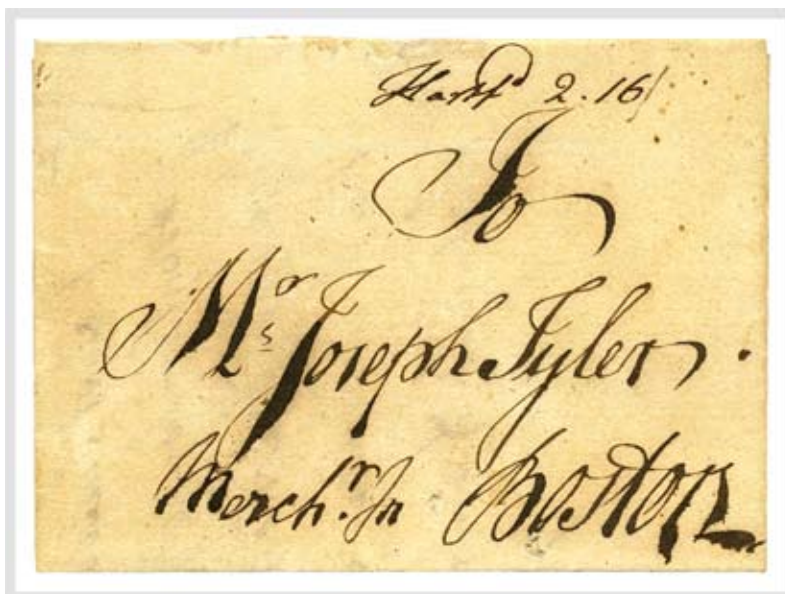 Hartfd 2.16/
To
Mr Joseph Tyler
Merchr. In Boston